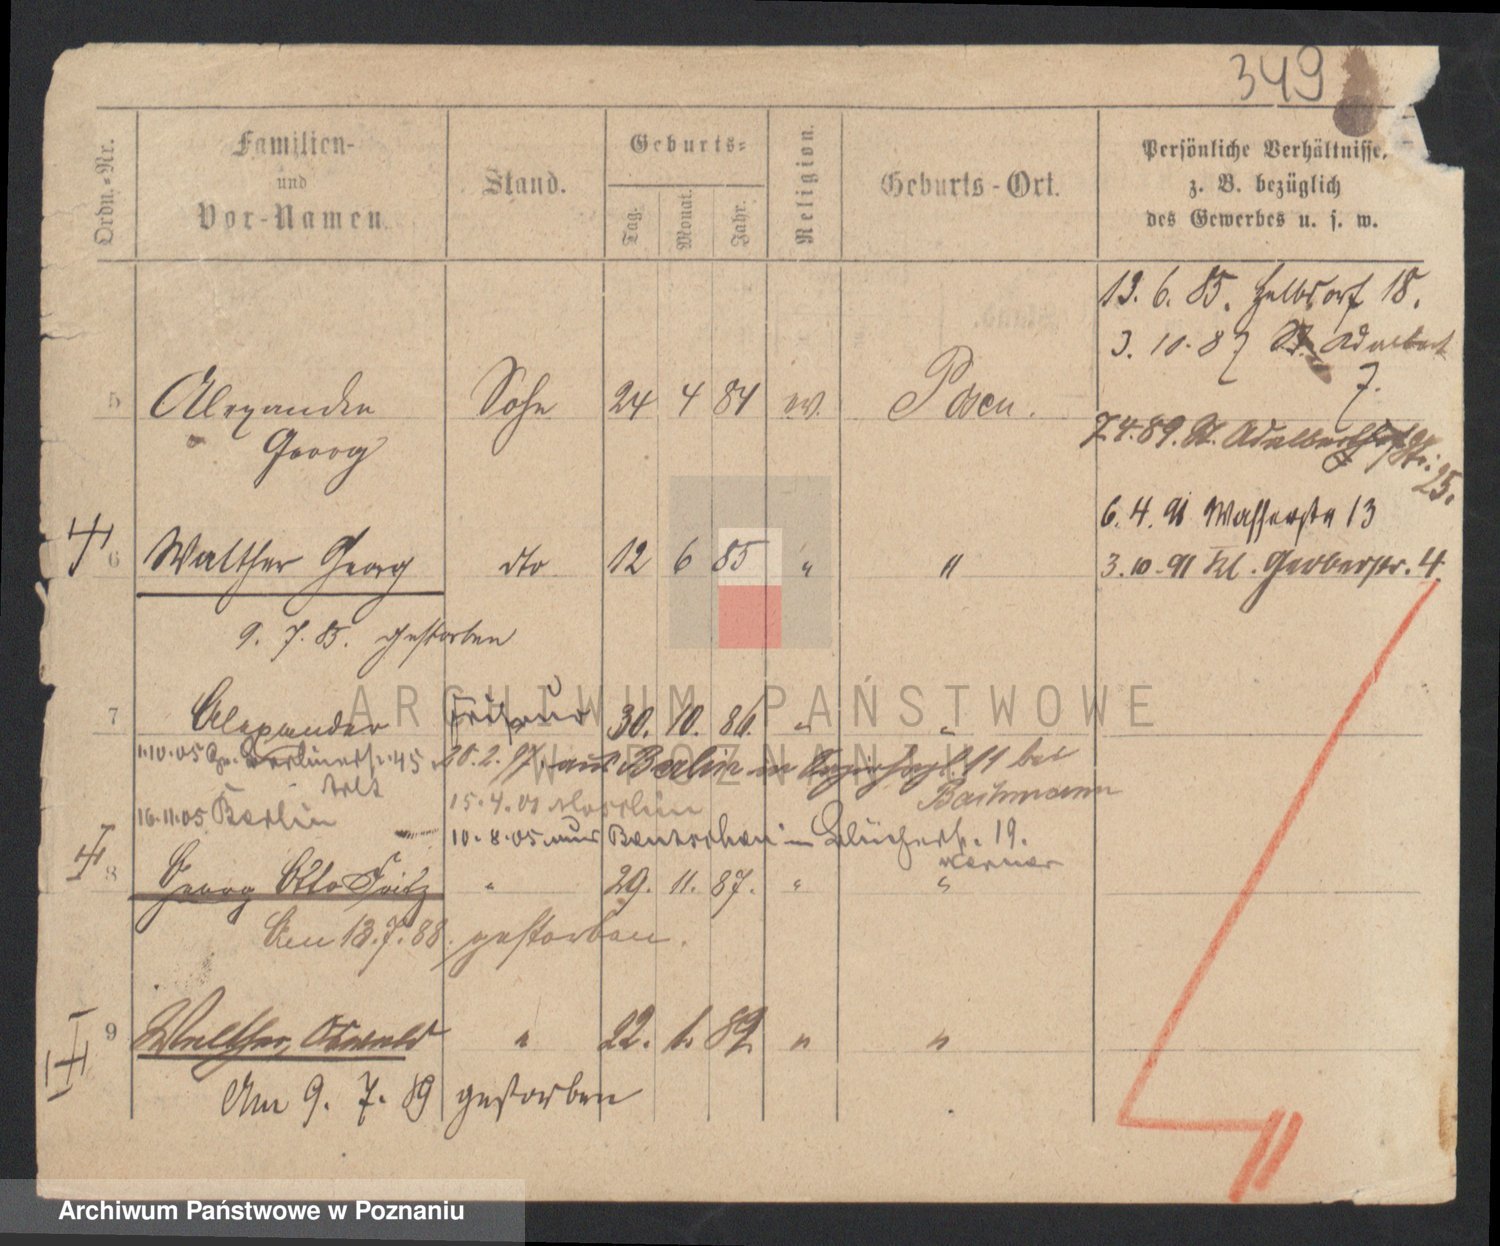 349
Ordn.-Nr.
Familien-
und
Vor-Namen.
Stand.
Geburts-
Tag.
Monat.
Jahr.
Religion.
Geburts-Ort.
Persönliche Verhältnisse,
z. B. bezüglich
des Gewerbes u. s. w.
13. 6. 85. Halbdorf 18.
3. 10. 87 St. Adalbert
7.
5 Alexander Sohn 24 4 84 ev. Posen.
Georg
7.4.89. St. Adalbert
25.
6. 4. 91 Wasserstr 13
6 Walther Georg dto 12 6 85 " "
3. 10. 91 Kl. Gerberstr. 4.
9. 7. 85. gestorben
7 Alexander Friseur 30. 10. 86. " "
1.10.05 Berlinerstr. 45 28. 2. aus Berlin in bei
Bachmann
16.11.05 Berlin 15. 4. 01
10. 8. 05 aus Bentschen in Blücherstr. 19.
8 Georg Otto Fritz " 29. 11. 87. " "
Am 13. 7. 88. gestorben.
9 Walther, Oswald " 22. 1. 89. " "
Am 9. 7. 89 gestorben
ARCHIWUM PAŃSTWOWE
W POZNANIU
Archiwum Państwowe w Poznaniu